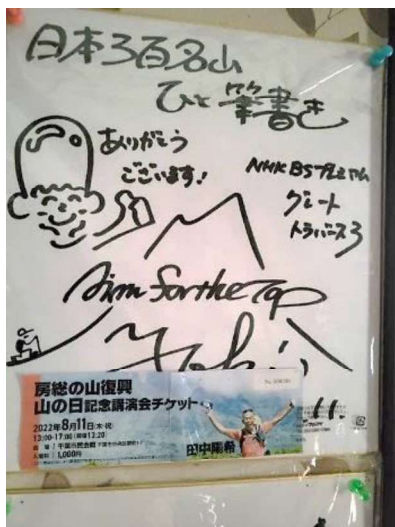 日本3百名山
ひと筆書き
ありがとう
ございます!
NHK BSプレミアム
グレート
トラバース3
Aim for the Top
Yoki
11.
房総の山復興
山の日記念講演会チケット
2022年8月11日(木・祝)
13:00-17:00(開場12:20)
会場 千葉市民会館
入場料 1,000円
田中陽希